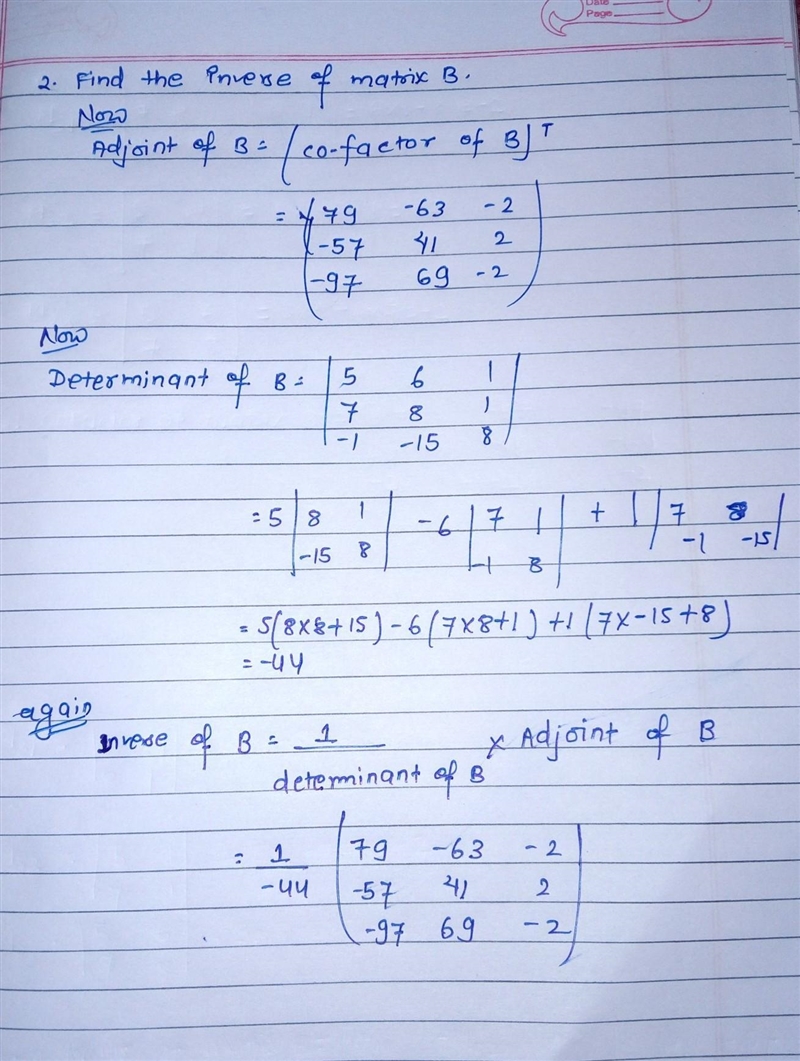 Date
Page
2. Find the inverse of matrix B.
Now
Adjoint of B = (co-factor of B)ᵀ
= (79 -63 -2
-57 41 2
-97 69 -2)
Now
Determinant of B = |5 6 1
7 8 1
-1 -15 8|
= 5 |8 1 -15 8| - 6 |7 1 -1 8| + 1 |7 8 -1 -15|
= 5(8×8+15) - 6(7×8+1) + 1(7×-15+8)
= -44
again
Inverse of B = 1 / determinant of B × Adjoint of B
= 1/-44 (79 -63 -2
-57 41 2
-97 69 -2)